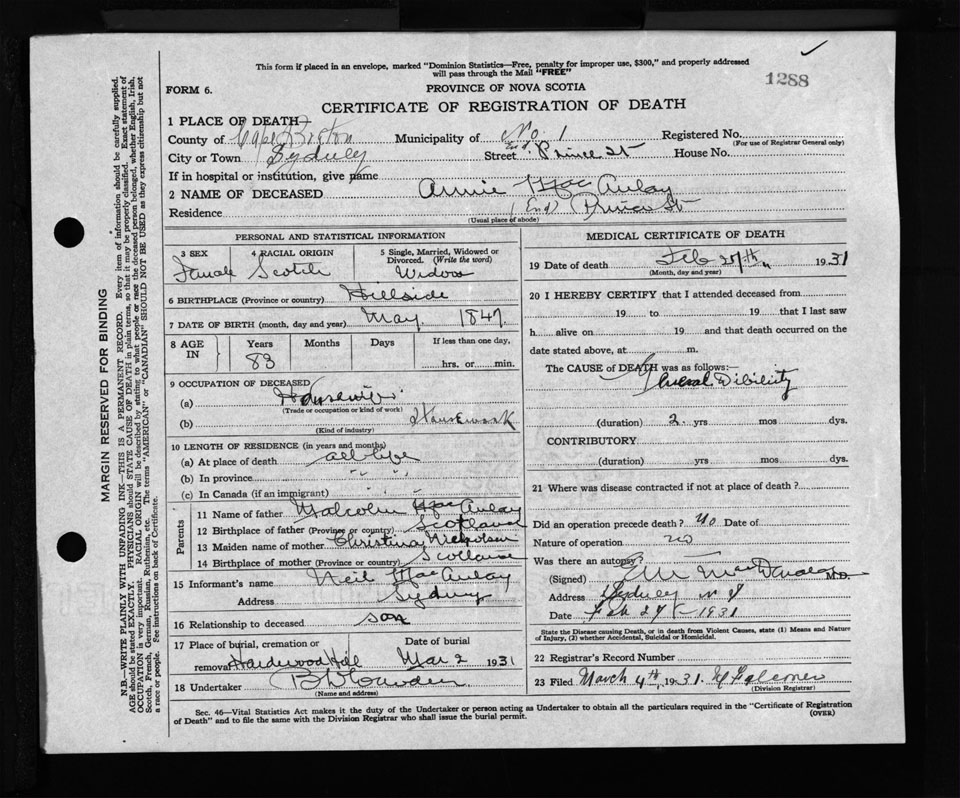 1288
This form if placed in an envelope, marked "Dominion Statistics—Free, penalty for improper use, $300," and properly addressed
will pass through the Mail "FREE"
FORM 6.
PROVINCE OF NOVA SCOTIA
CERTIFICATE OF REGISTRATION OF DEATH
1 PLACE OF DEATH
County of Cape Breton Municipality of No. 1 Registered No.
(For use of Registrar General only)
City or Town Sydney Street End. Prince St House No.
If in hospital or institution, give name
2 NAME OF DECEASED Annie MacAulay
Residence (End) Prince St
(Usual place of abode)
PERSONAL AND STATISTICAL INFORMATION
3 SEX 4 RACIAL ORIGIN 5 Single, Married, Widowed or
Divorced. (Write the word)
Female Scotch Widow
6 BIRTHPLACE (Province or country) Hillside
7 DATE OF BIRTH (month, day and year) May. 1847.
8 AGE IN Years Months Days If less than one day,
83 hrs. or min.
9 OCCUPATION OF DECEASED
(a) Housewife
(Trade or occupation or kind of work)
(b) Housework
(Kind of industry)
10 LENGTH OF RESIDENCE (in years and months)
(a) At place of death all life
(b) In province " " "
(c) In Canada (if an immigrant) " "
Parents
11 Name of father Malcolm MacAulay
12 Birthplace of father (Province or country) Scotland
13 Maiden name of mother Christina Nicholson
14 Birthplace of mother (Province or country) Scotland
15 Informant's name Neil MacAulay
Address Sydney
16 Relationship to deceased son
17 Place of burial, cremation or Date of burial
removal Hardwood Hill Mar 2 1931
18 Undertaker
(Name and address)
MEDICAL CERTIFICATE OF DEATH
19 Date of death Feb 28th 1931
(Month, day and year)
20 I HEREBY CERTIFY that I attended deceased from
19 to 19 that I last saw
h alive on 19 and that death occurred on the
date stated above, at m.
The CAUSE of DEATH was as follows:—
General Dibility
(duration) 2 yrs mos dys.
CONTRIBUTORY
(duration) yrs mos dys.
21 Where was disease contracted if not at place of death?
Did an operation precede death? No Date of
Nature of operation no
Was there an autopsy?
(Signed) MacDonald M.D.
Address Sydney N S
Date Feb 1931
State the Disease causing Death, or in death from Violent Causes, state (1) Means and Nature
of Injury, (2) whether Accidental, Suicidal or Homicidal.
22 Registrar's Record Number
23 Filed March 4th, 1931. Falconer
(Division Registrar)
Sec. 46—Vital Statistics Act makes it the duty of the Undertaker or person acting as Undertaker to obtain all the particulars required in the "Certificate of Registration
of Death" and to file the same with the Division Registrar who shall issue the burial permit.
(OVER)
MARGIN RESERVED FOR BINDING
N.B.—WRITE PLAINLY WITH UNFADING INK—THIS IS A PERMANENT RECORD. Every item of information should be carefully supplied.
AGE should be stated EXACTLY. PHYSICIANS should STATE CAUSE OF DEATH in plain terms, so that it may be properly classified. Exact statement of
OCCUPATION is very important. RACIAL ORIGIN will be described by stating to what people or race the deceased person belonged, whether English, Irish,
Scotch, French, German, Russian, Ruthenian, etc. The terms "AMERICAN" or "CANADIAN" SHOULD NOT BE USED as they express citizenship but not
a race or people. See instructions on back of Certificate.